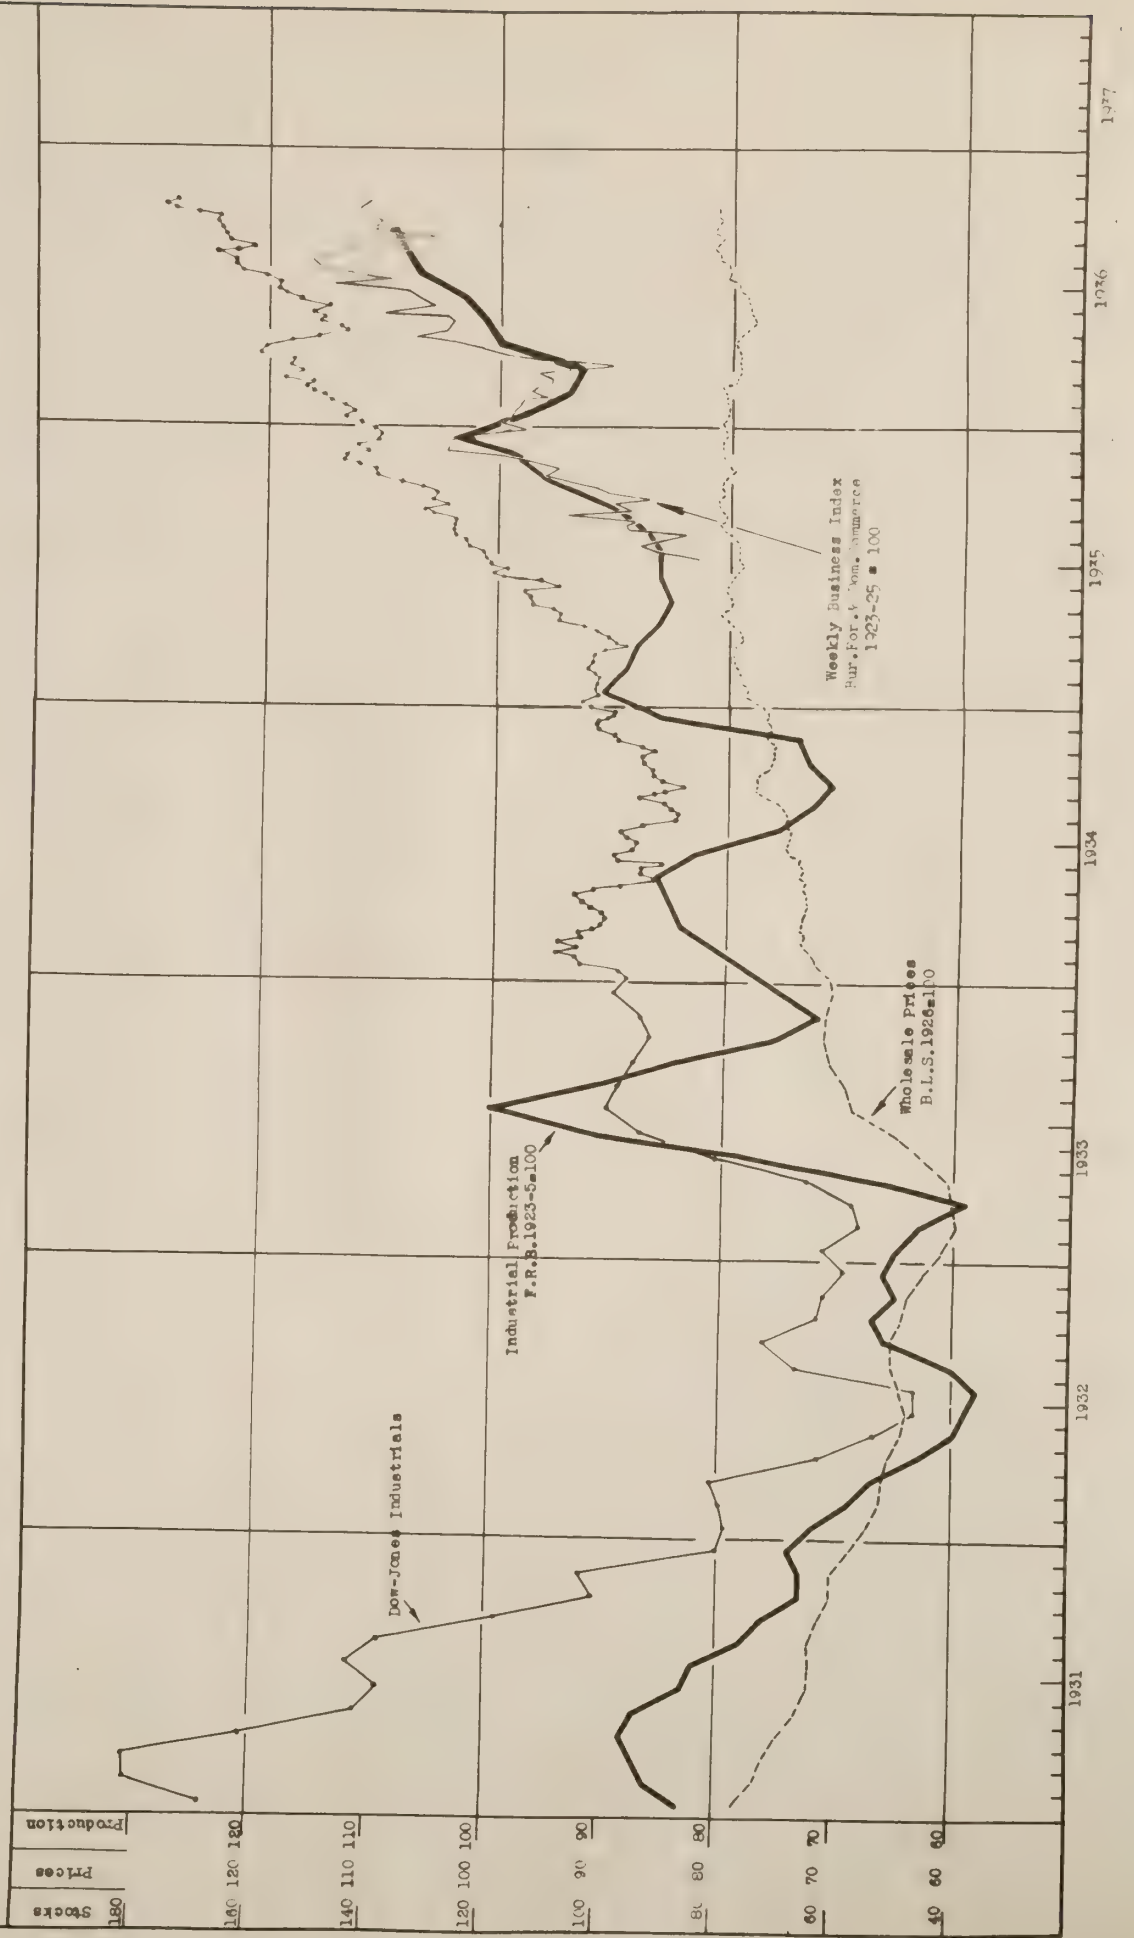 Stocks Prices Production
180
160 120 120
140 110 110
120 100 100
100 90 90
80 80 80
60 70 70
40 60 60
Dow-Jones Industrials
Industrial Production
F.R.B.1923-5=100
Wholesale Prices
B.L.S.1926=100
Weekly Business Index
Bur.For.& Dom. Commerce
1923-25 = 100
1931
1932
1933
1934
1935
1936
1937